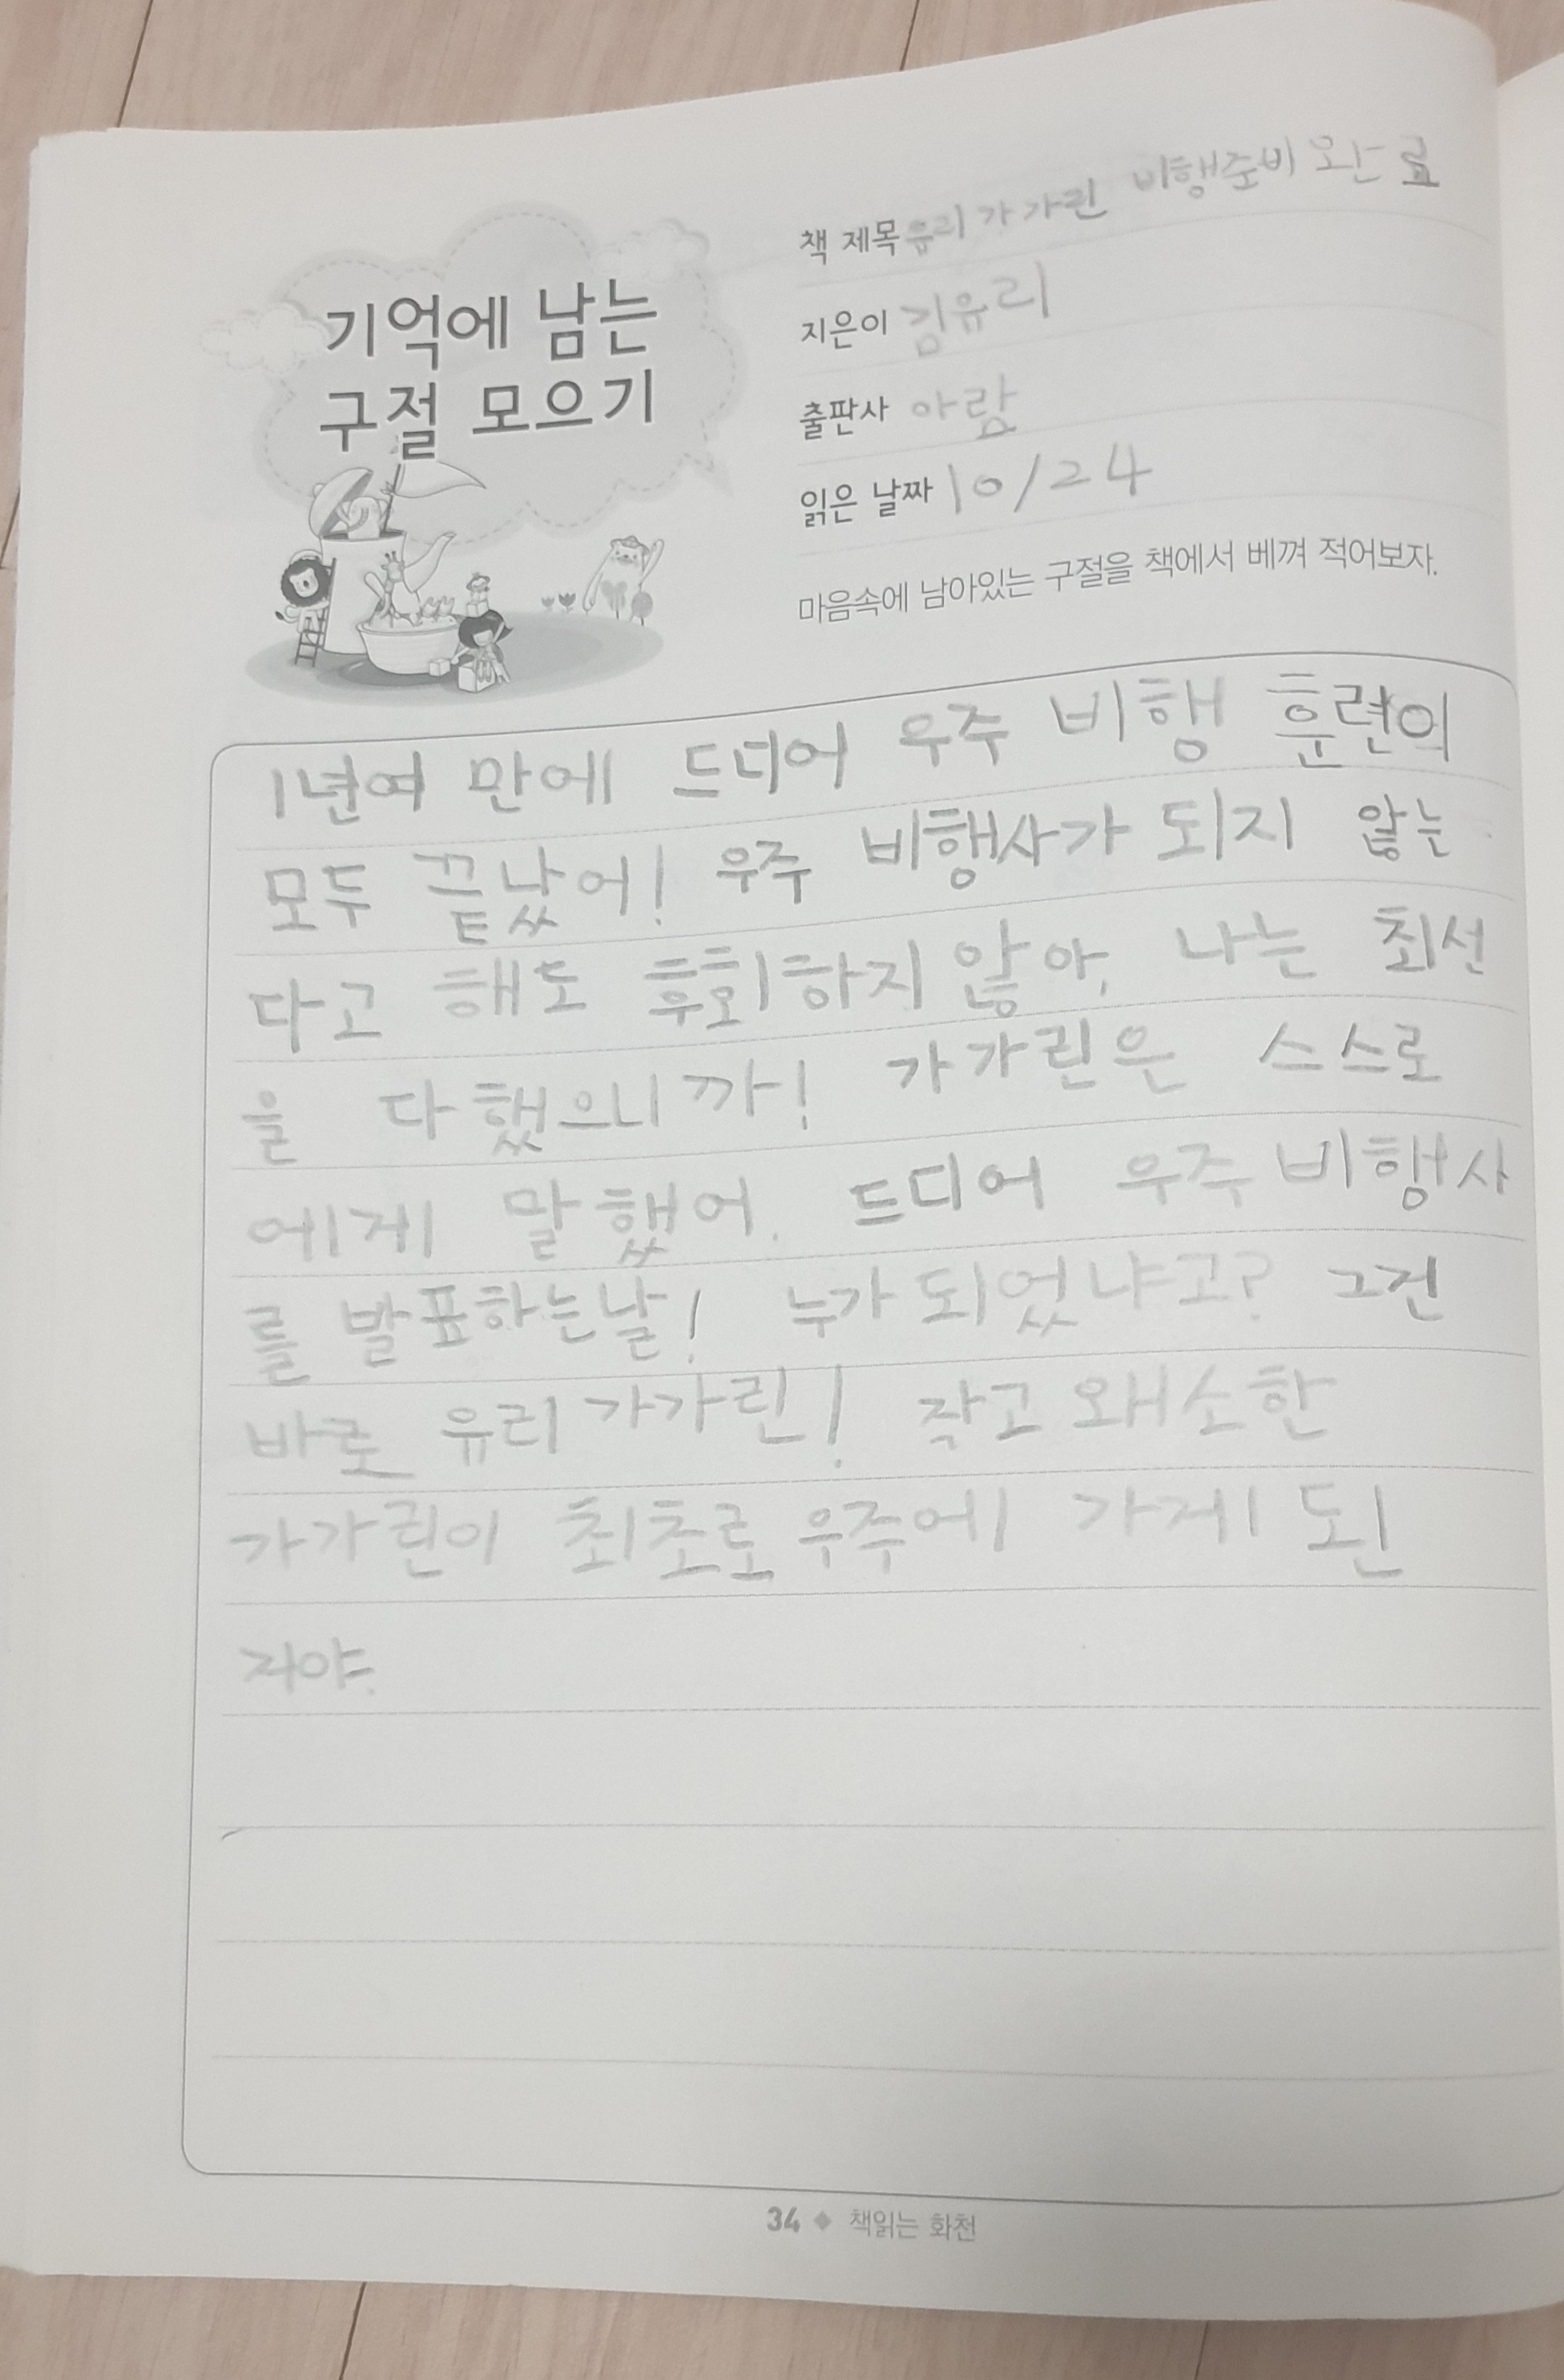 기억에 남는
구절 모으기
책 제목 유리 가가린 비행준비 완료
지은이 김유리
출판사 아람
읽은 날짜 10/24
마음속에 남아있는 구절을 책에서 베껴 적어보자.
1년여 만에 드디어 우주 비행 훈련이
모두 끝났어! 우주 비행사가 되지 않는
다고 해도 후회하지 않아, 나는 최선
을 다했으니까! 가가린은 스스로
에게 말했어. 드디어 우주 비행사
를 발표하는날! 누가 되었냐고? 그건
바로 유리 가가린! 작고 왜소한
가가린이 최초로 우주에 가게 된
거야.
34 ◆ 책읽는 화천